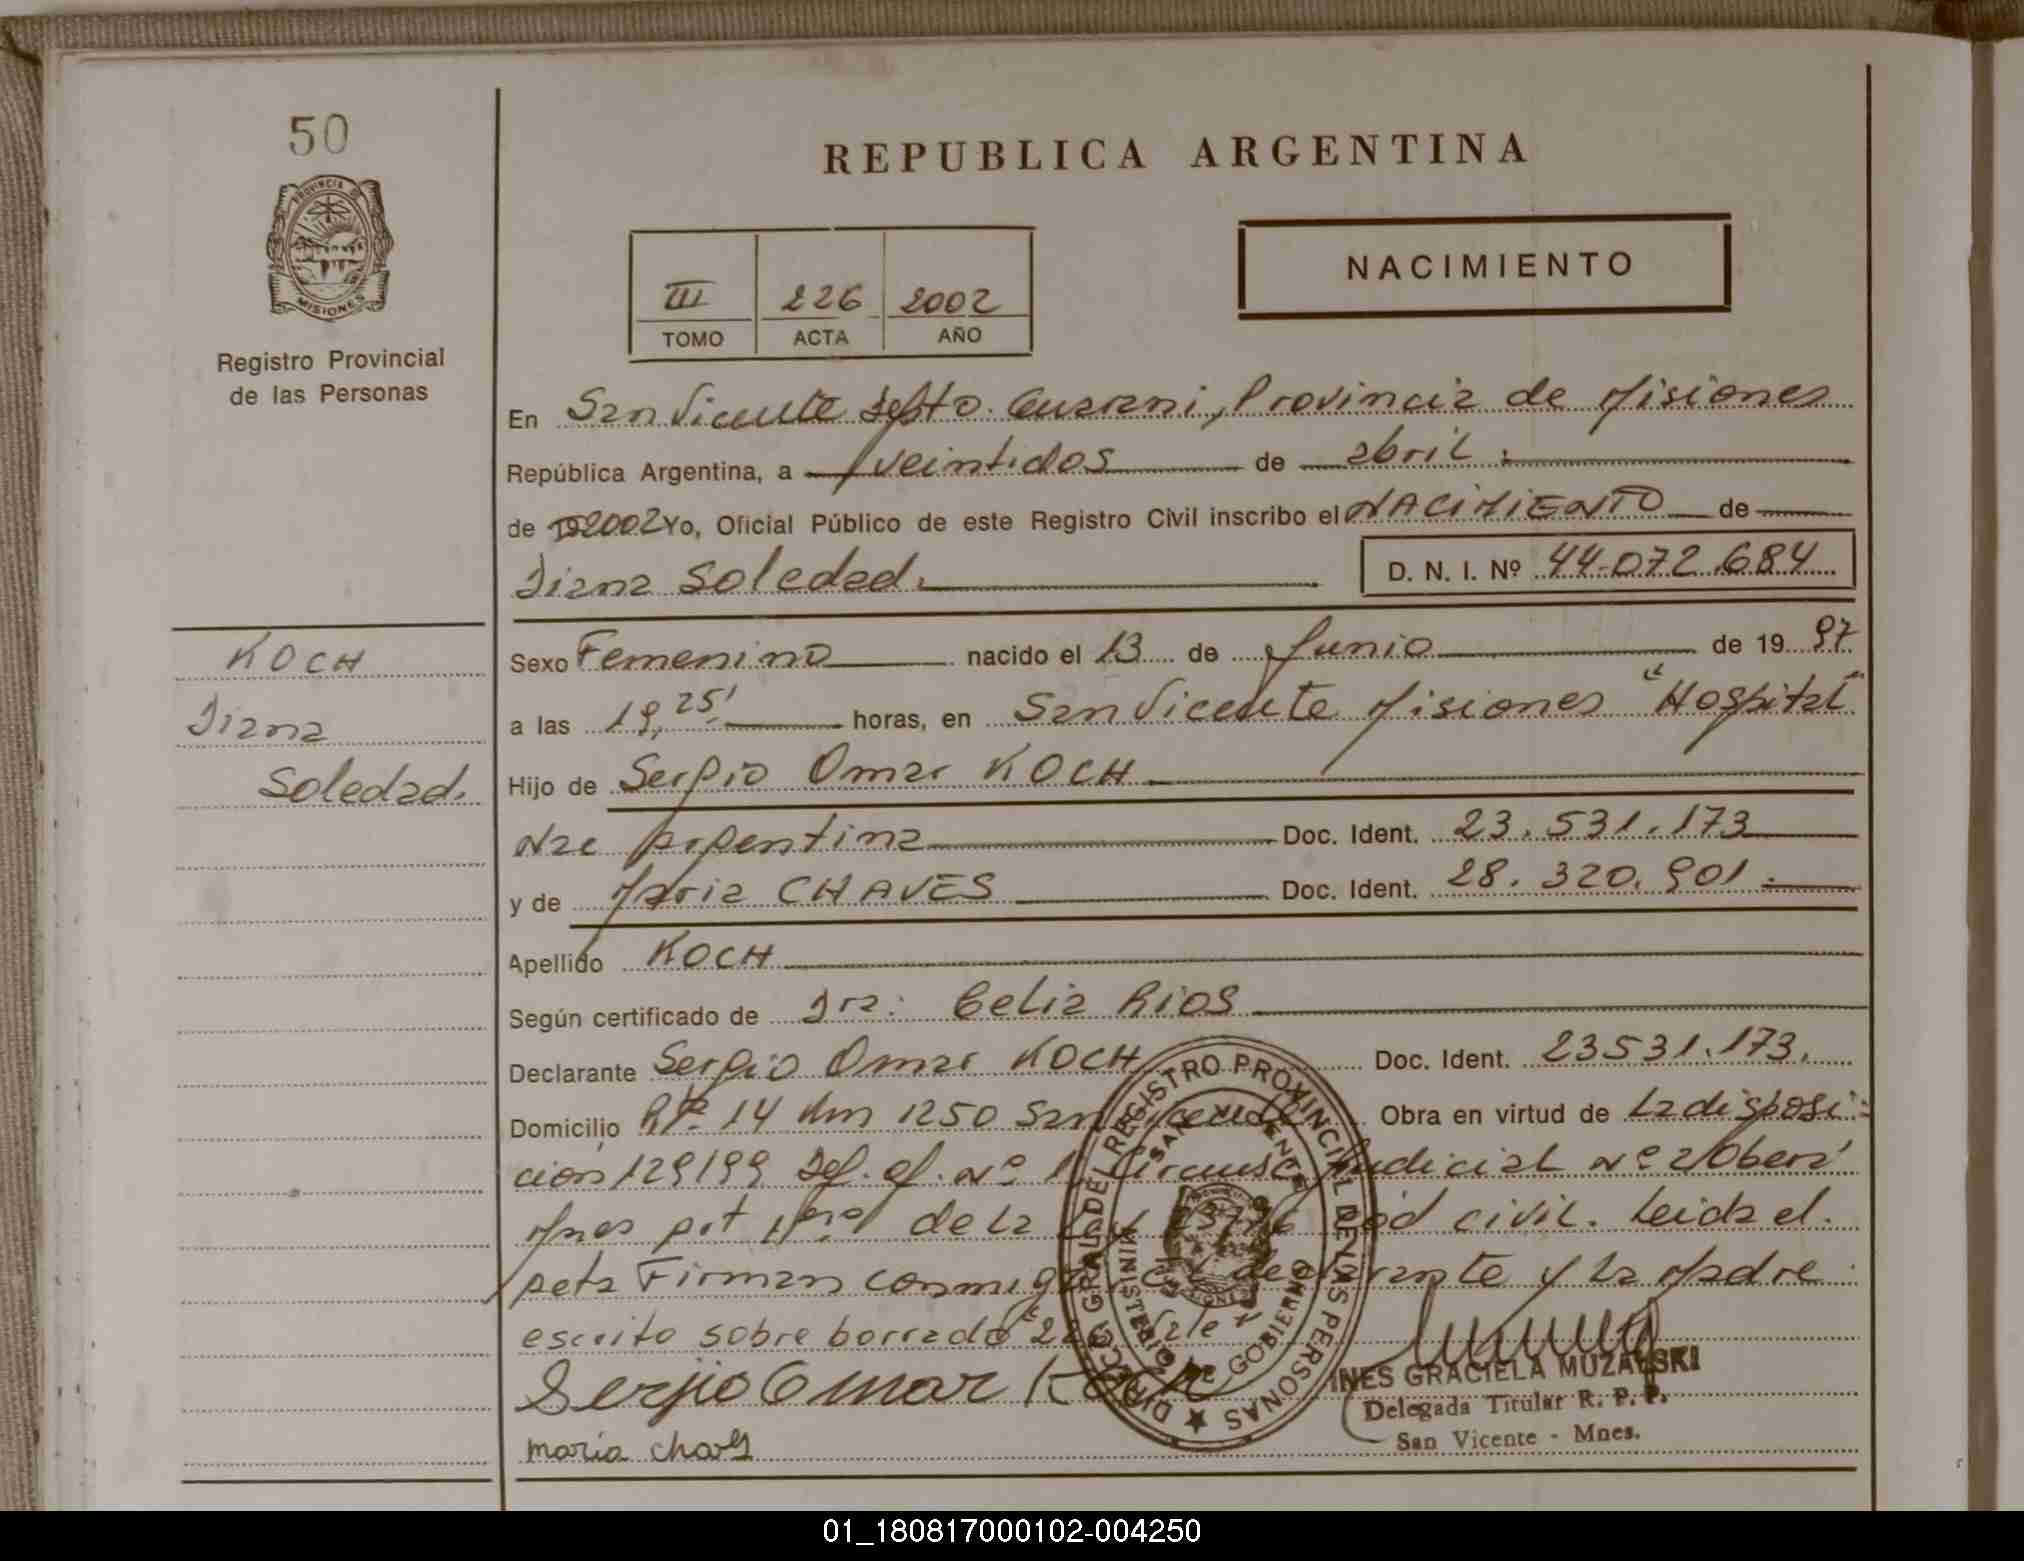 50
PROVINCIA DE
MISIONES
Registro Provincial
de las Personas
REPUBLICA ARGENTINA
III 226 2002
TOMO ACTA AÑO
NACIMIENTO
En San Vicente Depto. Guarani, Provincia de Misiones
República Argentina, a veintidos de abril
de 2002 Yo, Oficial Público de este Registro Civil inscribo el NACIMIENTO de
Diana Soledad. D. N. I. Nº 44.072.684
KOCH
Diana
Soledad.
Sexo Femenino nacido el 13 de Junio de 19 97
a las 19,25' horas, en San Vicente Misiones "Hospital"
Hijo de Sergio Omar KOCH
Nac Argentina Doc. Ident. 23.531.173
y de Maria CHAVES Doc. Ident. 28.320.901.
Apellido KOCH
Según certificado de Dra: Celia Rios
Declarante Sergio Omar KOCH Doc. Ident. 23531.173.
Domicilio R.P. 14 Km 1250 San Vicente Obra en virtud de La disposi-
cion 129/99 Def. of. Nº 1 Circunsc. Judicial Nº 2 Oberá
Mnes de La Cod civil. Leida el.
acta Firman conmigo el declarante y La Madre
escrito sobre borrado "226" Vale
Sergio Omar Koch
maria chaves
DIRECC. GRAL. DEL REGISTRO PROVINCIAL DE LAS PERSONAS
SAN VICENTE
MINISTERIO DE GOBIERNO
INES GRACIELA MUZALSKI
Delegada Titular R. P. P.
San Vicente - Mnes.
01_180817000102-004250